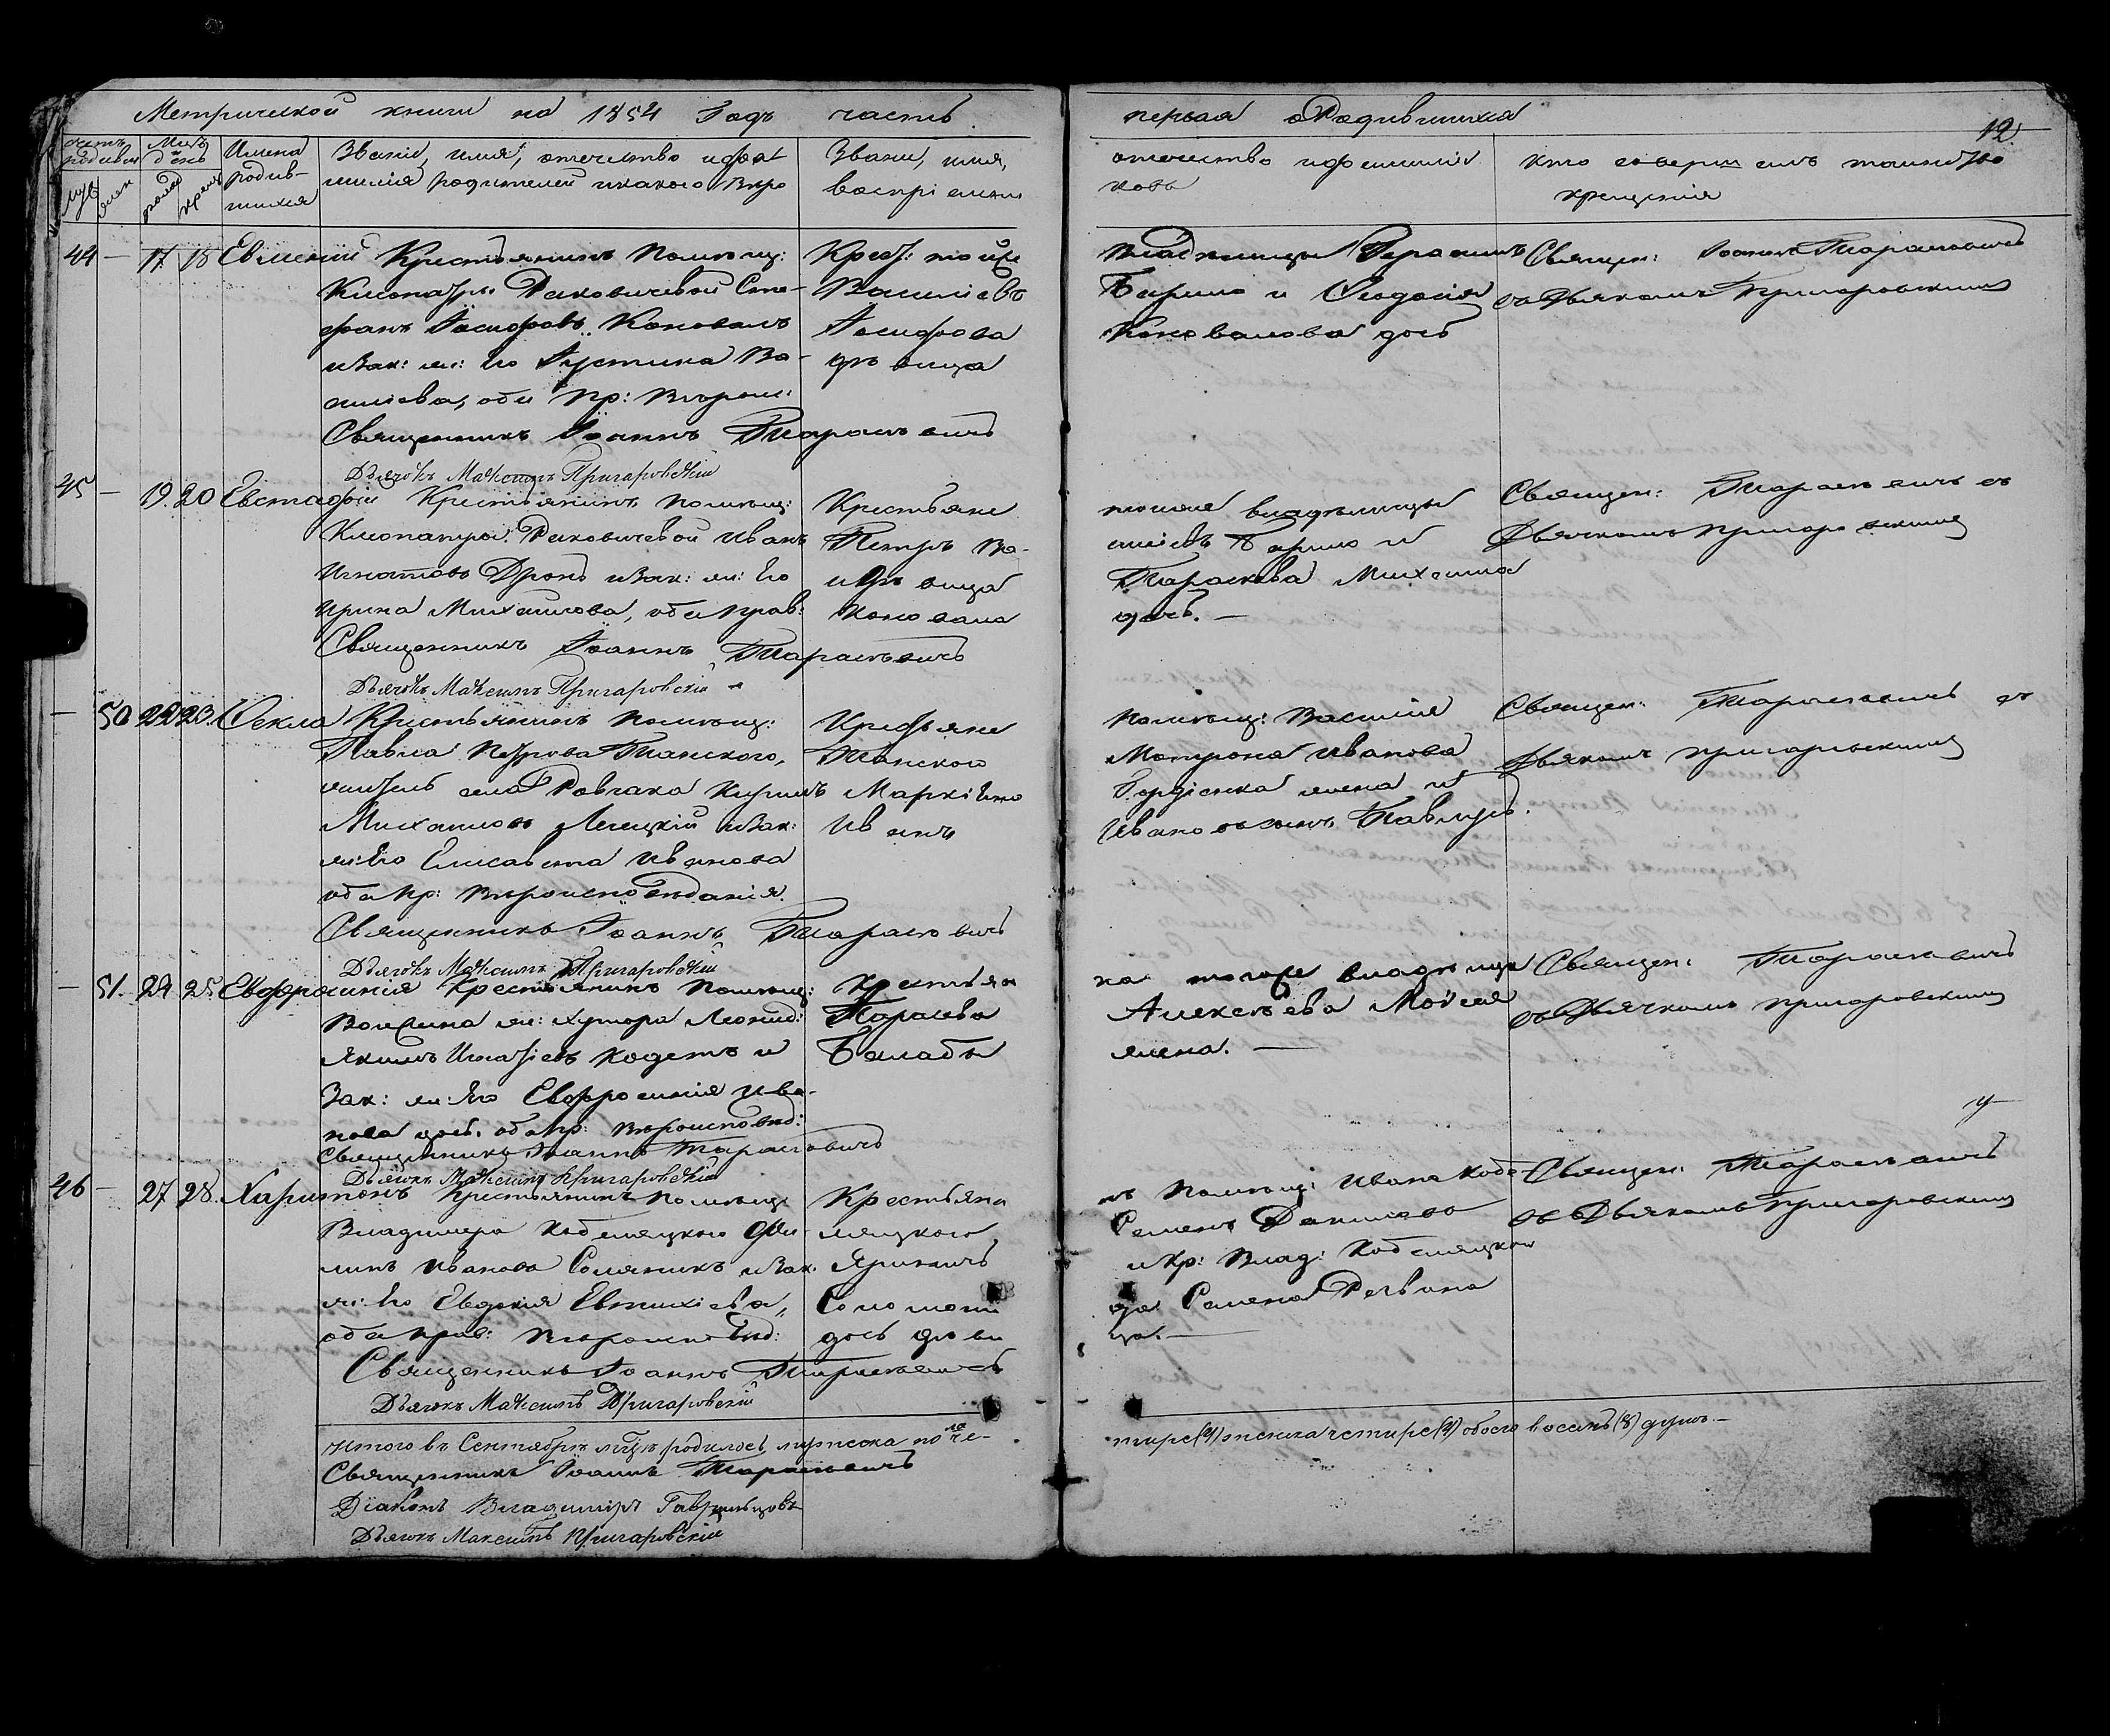 Метрической книги на 1854 Годъ часть
первая о Родившихся
12.
Имена родив-
шихся
Званіе, имя, отчество и фам
милія родителей и какого Веро
Званіе, имя,
воспріемни
отчество и фамилія
ковъ
кто совершилъ таинство
крещенія
44 — 17 18 Евменій Крестьянинъ Помѣщ:
Клеопатры Раковичевой Сте-
фанъ Іосифовъ Коновалъ
и Зак: ж: Его Іустина Ва-
силіева, оба Пр: Вѣроис:
Священникъ Іоаннъ Тарасевичъ
Дьячокъ Максимъ Пригаровскій
Крест: той же
Василіевъ
Іосифова
дѣвица
Владѣлицы Герасимъ
Барило и Ѳеодосія
Коновалова дочь
Священ: Іоаннъ Тарасевичъ
съ Дьячкомъ Пригоровскимъ
45 — 19. 20 Евстафій Крестьянинъ Помѣщ:
Клеопатры Раковичевой Иванъ
Игнатовъ Дронъ и Зак: ж: Его
Ирина Михаилова, оба прав:
Священникъ Іоаннъ Тарасѣвичъ
Дьячокъ Максимъ Пригаровскій
Крестьяне
Петръ Ва-
и дѣвица
Коновала
тоиже владѣлицы
силіевъ Барило и
Параскева Михаила
дочь. —
Священ: Тарасѣвичъ съ
Дьячкомъ Пригоровскимъ
— 50 22 23. Ѳекла Крестьянинъ помѣщ:
Павла Петрова Танского,
житель села Ровчака Кирилъ
Михаиловъ Легецкій и Зак:
ж: Его Елисавета Иванова
оба Пр: Вѣроисповѣданія.
Священникъ Іоаннъ Тарасовичъ
Дьячокъ Максимъ Пригаровскій
Крестьяне
Танского
Иванъ
Помѣщ: Василія
Матрона Иванова
жена и
Священ: Тарасевичъ съ
Дьячкомъ Пригаровскимъ
— 51. 24 25. Евфросинія Крестьянинъ Помѣщ:
ж: хутора Леонид:
Якимъ Игнатіевъ Кодетъ и
Зак: ж: Его Евфросинія Ива-
нова дочь, оба Пр: Вѣроисповѣд:
Священникъ Іоаннъ Тарасовичъ
Дьячокъ Максимъ Пригаровскій
Крестьян
Балабы
ка тогоже владѣльца
Алексѣева Мойсея
жена. —
Священ: Тарасевичъ
съ Дьячкомъ Пригоровскимъ
46 — 27 28. Харитонъ Крестьянинъ Помѣщ:
Владимера Кобеляцкого Фи-
липъ Ивановъ Соляникъ и Зак:
ж: Его Евдокія Евтихіева,
оба прав: Вѣроисповѣд:
Священникъ Іоаннъ Тарасевичъ
Дьячокъ Максимъ Пригаровскій
Крестьяна
ляцкого
Соломони
дочь дѣви
нъ Помѣщ: Ивана Кобе-
Семенъ Даниловъ
и Кр: Влад: Кобеляцкого
да Семена
ца. —
Священ: Тарасѣвичъ
съ Дьячкомъ Пригоровскимъ
Итого въ Сентябрѣ мѣцѣ родилось мужеска пола че-
тире (4) женска четире (4) обоего восемь (8) душъ. —
Священникъ Іоаннъ Тарасѣвичъ
Діаконъ Владиміръ
Дьячокъ Максимъ Пригаровскій